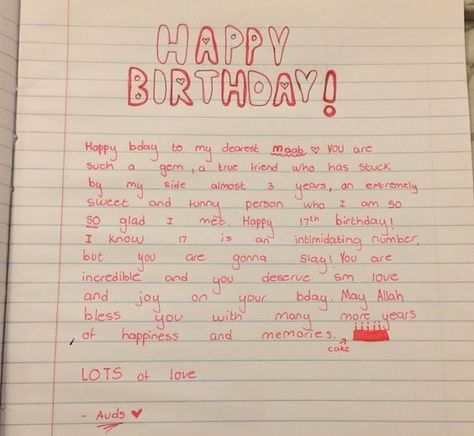 HAPPY
BIRTHDAY!
Happy bday to my dearest Maab ♡ YOU are
such a gem, a true friend who has stuck
by my side almost 3 years, an extremely
sweet and funny person who I am so
so glad I met. Happy 17th birthday!
I know 17 is an intimidating number,
but you are gonna slay! You are
incredible and you deserve sm love
and joy on your bday. May Allah
bless you with many more years
of happiness and memories.
cake
LOTS of love
- Auds ♥